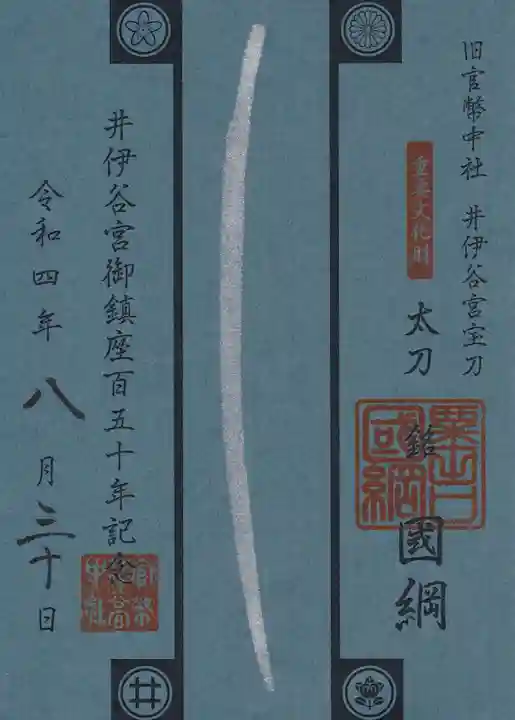 旧官幣中社 井伊谷宮宝刀
重要文化財
太刀 銘 國綱
粟田口國綱
井伊谷宮御鎮座百五十年記念
官幣中社
令和四年八月三十日